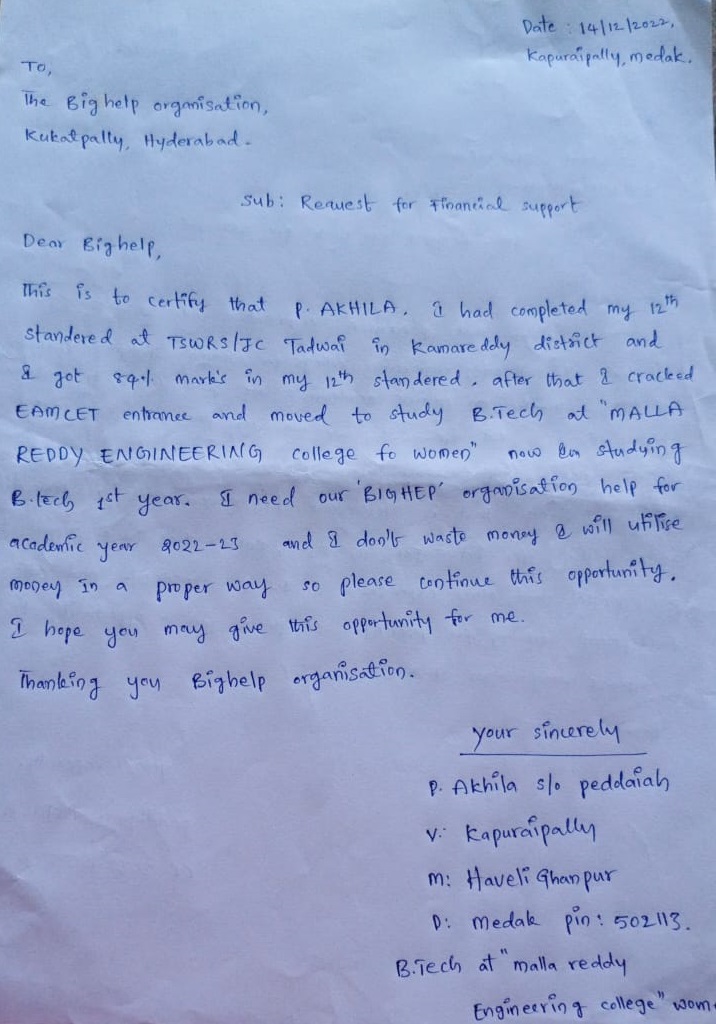 Date : 14/12/2022,
Kapuraipally, medak.
To,
The Big help organisation,
Kukatpally, Hyderabad.
Sub: Request for Financial support
Dear Bighelp,
This is to certify that P. AKHILA. I had completed my 12th
standered at TSWRS/JC Tadwai in Kamareddy district and
I got 84% mark's in my 12th standered. after that I cracked
EAMCET entrance and moved to study B.Tech at "MALLA
REDDY ENGINEERING college fo women" now studying
B.tech 1st year. I need our 'BIGHEP' organisation help for
academic year 2022-23 and I don't waste money & will utilise
money in a proper way so please continue this opportunity.
I hope you may give this opportunity for me.
Thanking you Bighelp organisation.
your sincerely
P. Akhila s/o peddaiah
V: Kapuraipally
m: Haveli Ghanpur
D: medak pin: 502113.
B.Tech at "malla reddy
Engineering college" wom